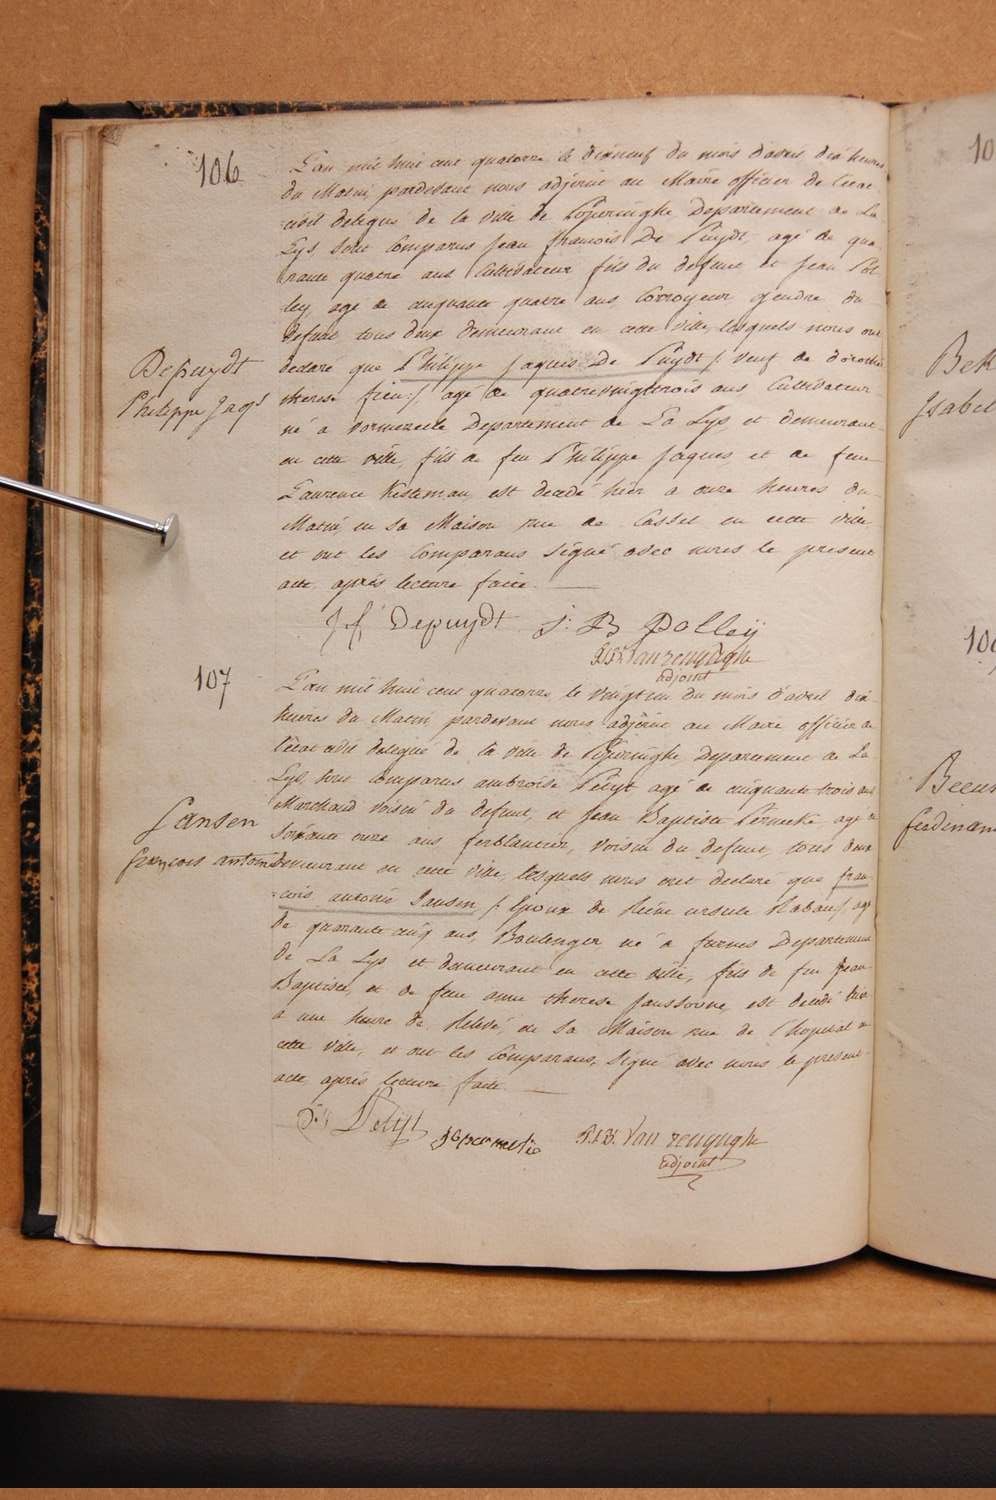 106
L'an mil huit cent quatorze le dixneuf du mois d'avril dix heures
du Matin pardevant nous adjoint au Maire officier de l'etat
civil delegué de la ville de Poperinghe Departement de La
Lys, sont Comparus Jean francois De Puydt, agé de qua
rante quatre ans Cultivateur fils du defunt et Jean Pol
ley agé de cinquante quatre ans Corroyeur gendre du
defunt tous deux demeurant en cette ville, lesquels nous ont
declaré que Philippe Jaques De Puydt / veuf de dorothé
Depuydt
Philippe Jaqs
therese / agé de quatrevingttrois ans Cultivateur
né a vormezeele Departement de La Lys, et demeurant
en cette ville, fils de feu Philippe Jaques, et de feue
Laurence Kesteman, est decedé hier a onze heures du
Matin, en sa Maison rue de Cassel en cette ville
et ont les Comparans signé avec nous le present
acte, après lecture faite.
J.f. Depuydt J: B Polleÿ
P.J.B. Van renynghe
adjoint
107
L'an mil huit cent quatorze, le vingt un du mois d'avril dix
heures du Matin, pardevant nous adjoint au Maire officier de
l'état civil delegué de la ville de Poperinghe Departement de La
Lys, sont Comparus ambroise Petyt agé de cinquante trois ans
Marchand voisin du defunt, et Jean Baptiste agé de
Soixante onze ans ferblantier, voisin du defunt, tous deux
Jansen
françois antoine
Demeurant en cette ville, lesquels nous ont declaré que fran
=cois antoine Jansen / Epoux de ursule / agé
de quarante cinq ans, Boulenger né a furnes Departement
de La Lys et demeurant en cette ville, fils de feu Jean
Baptiste, et de feue anne therese, est decedé hier
a une heure de Relevé, en sa Maison rue de l'hopital en
cette ville, et ont les Comparans, signé avec nous le present
acte, après lecture faite.
Petÿt
P.J.B. Van renynghe
adjoint
Isabel
ferdinan